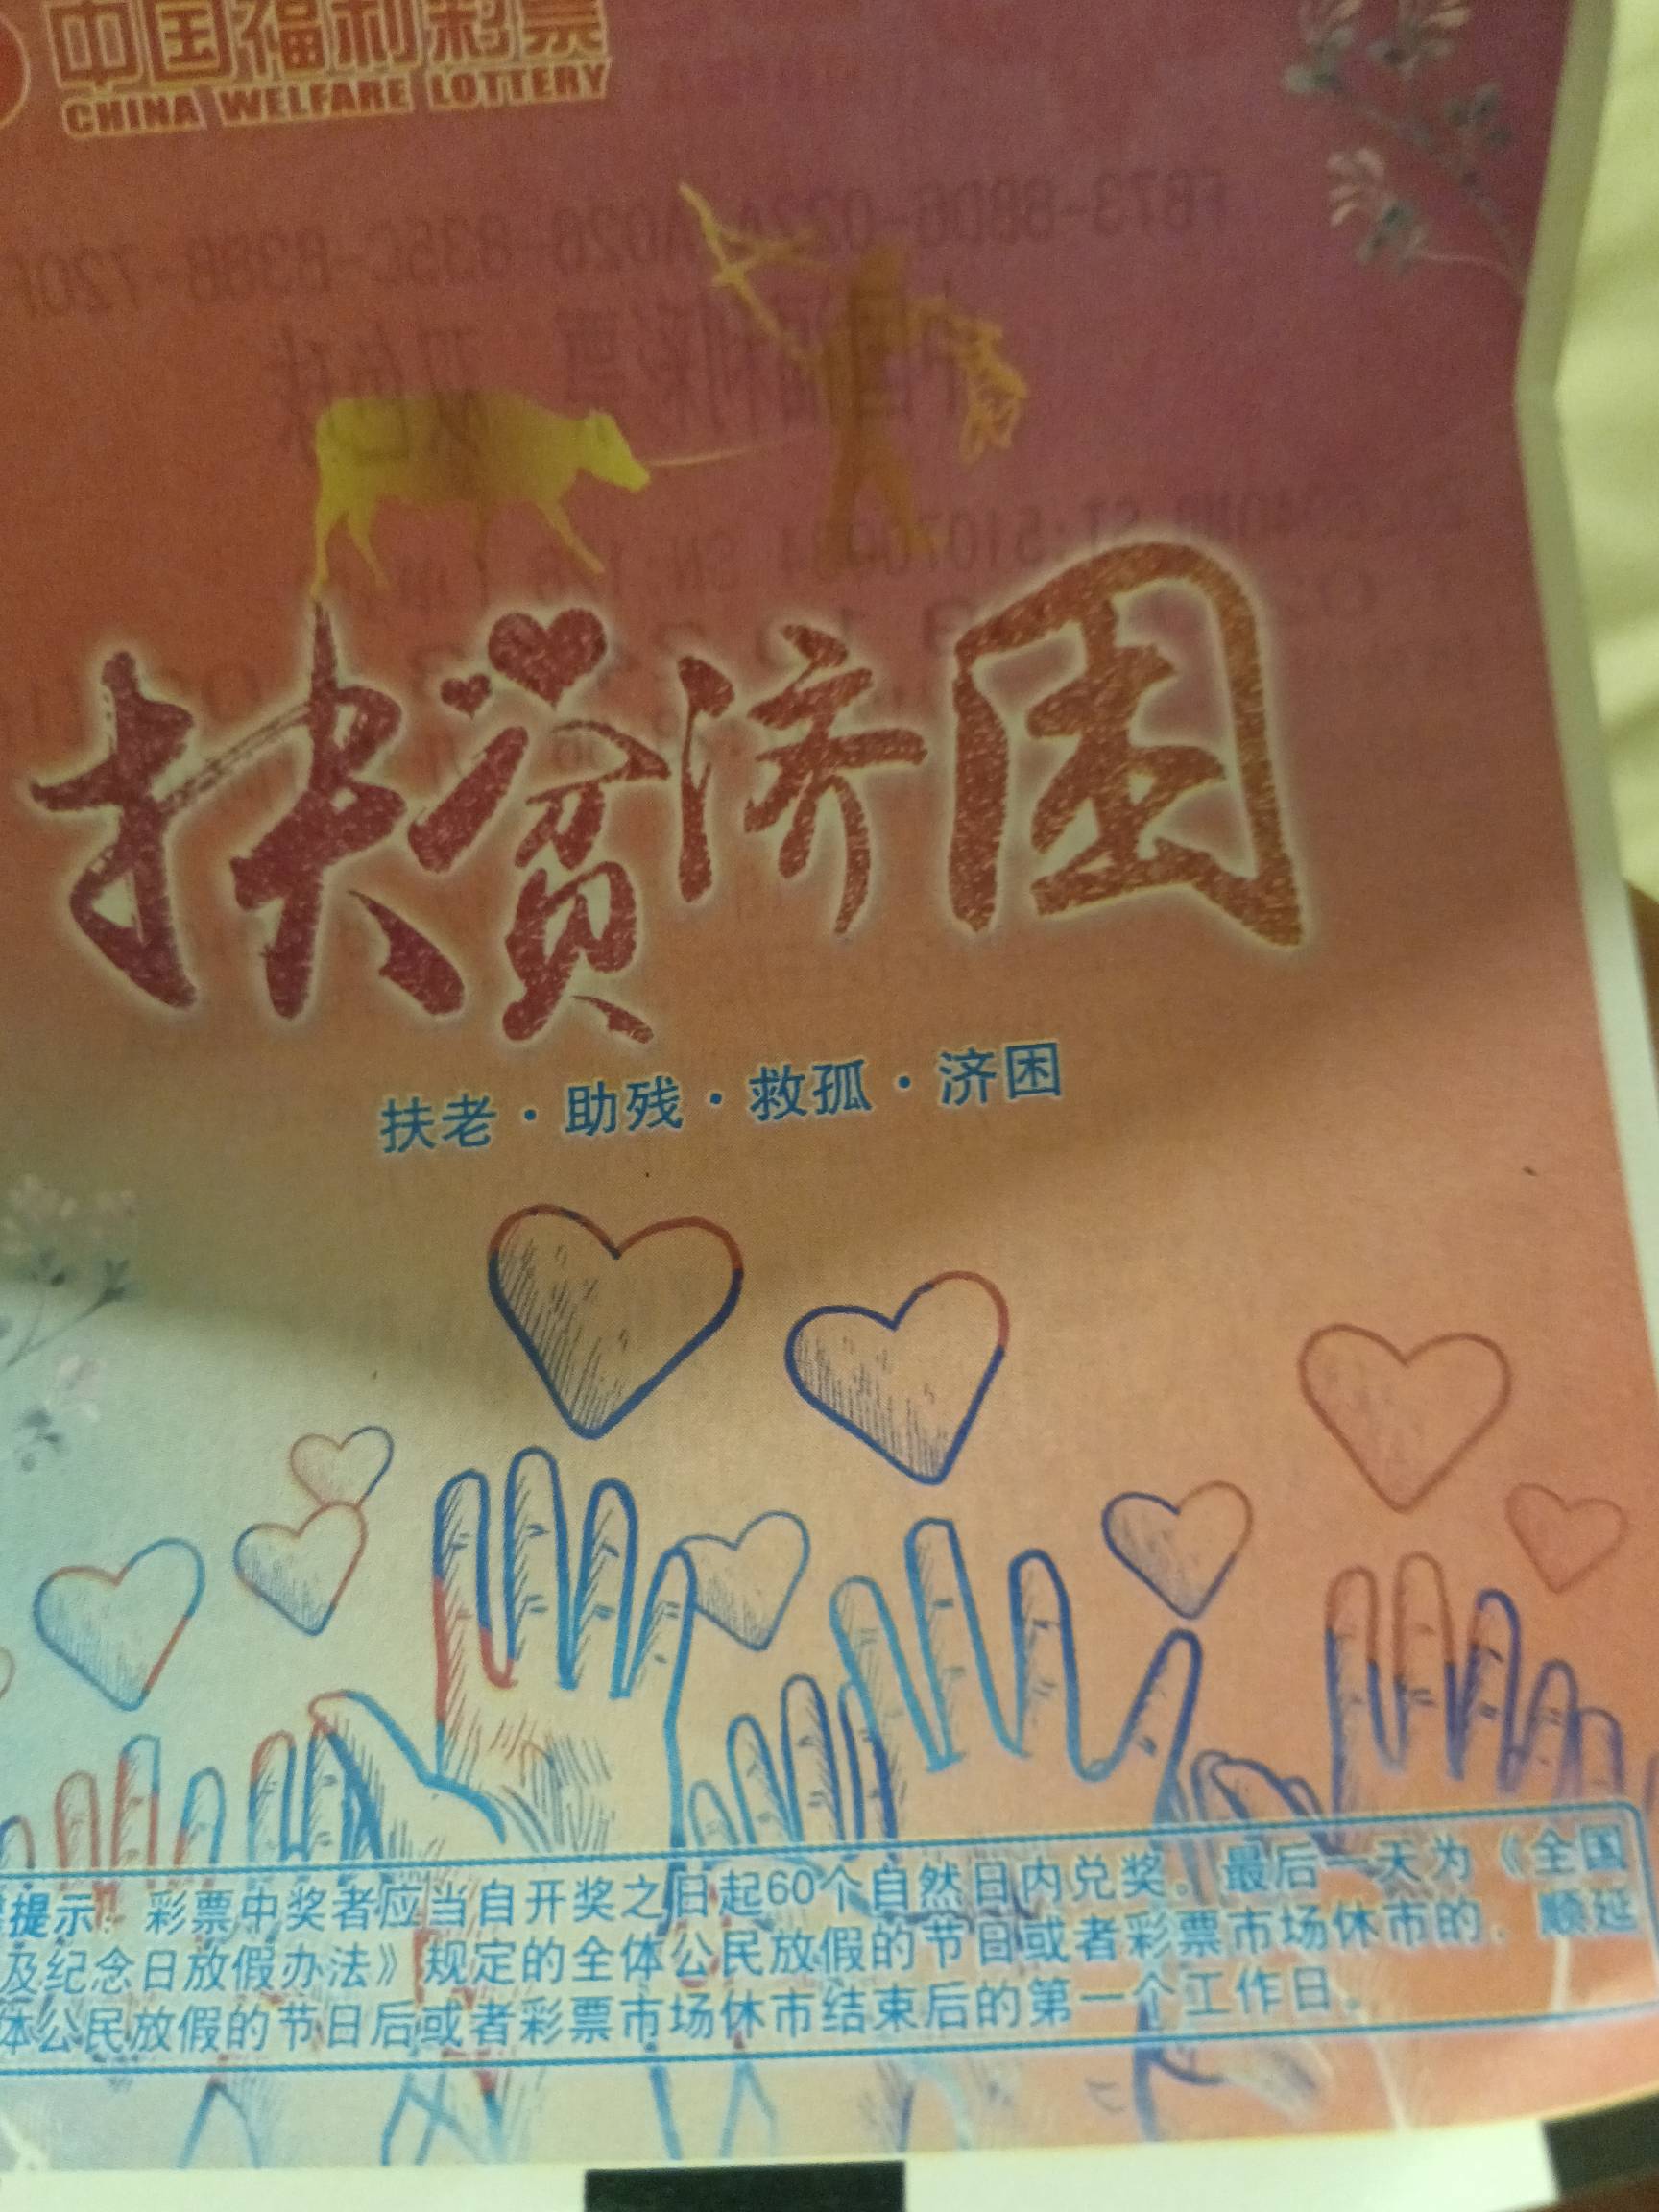 中国福利彩票
CHINA WELFARE LOTTERY
扶贫济困
扶老·助残·救孤·济困
提示：彩票中奖者应当自开奖之日起60个自然日内兑奖。最后一天为《全国
及纪念日放假办法》规定的全体公民放假的节日或者彩票市场休市的，顺延
体公民放假的节日后或者彩票市场休市结束后的第一个工作日。